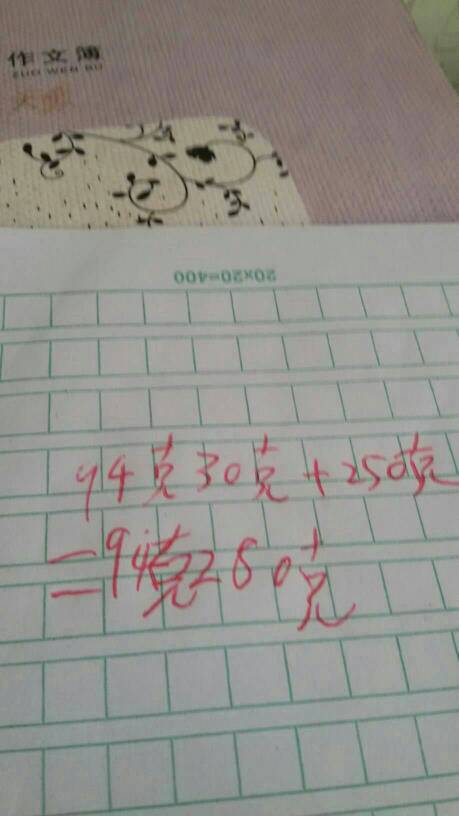 作文簿
ZUO WEN BU
20x20=400
94克30克+250克
=94克280克